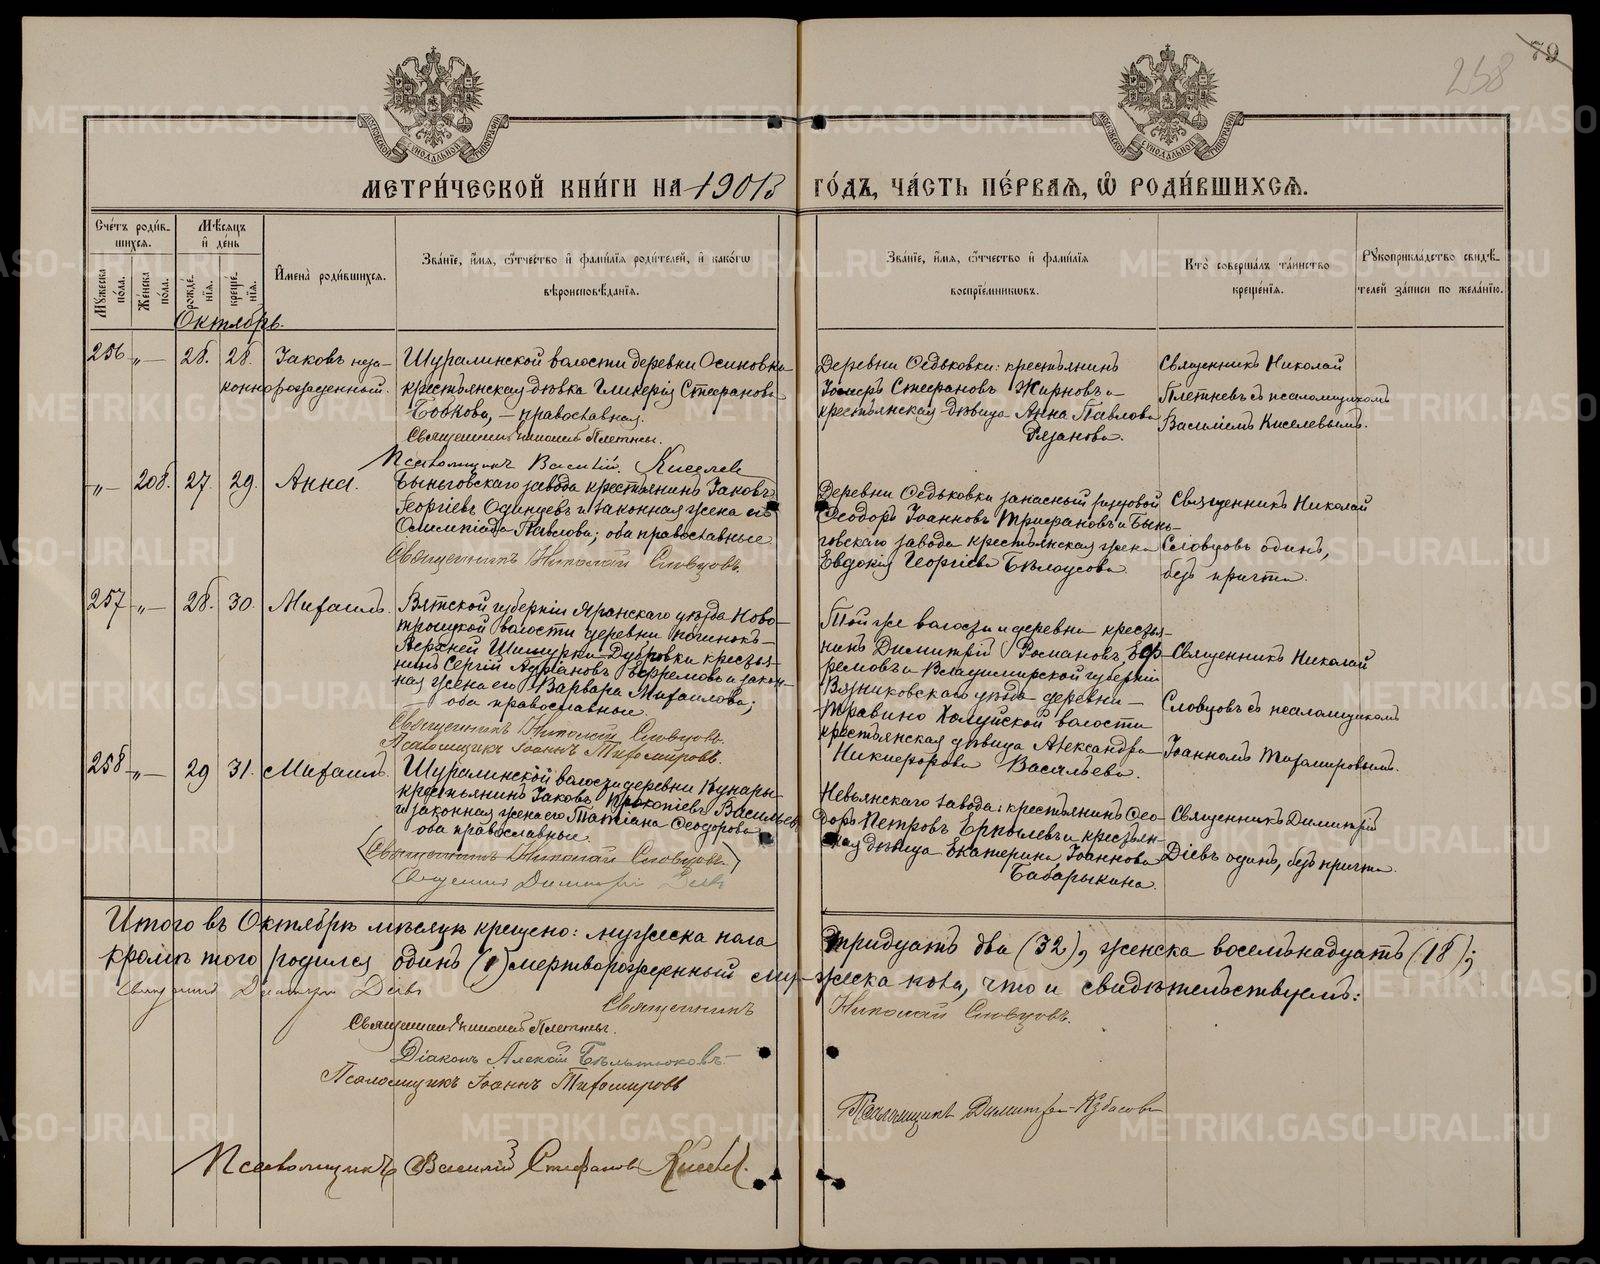 79
258
МОСКОВСКОЙ СѴНОДАЛЬНОЙ ТИПОГРАФІИ
МОСКОВСКОЙ СѴНОДАЛЬНОЙ ТИПОГРАФІИ
МЕТРИ́ЧЕСКОЙ КНИ́ГИ НА 1901
ГО́ДЪ, ЧА́СТЬ ПЕ́РВАѦ, Ѽ РОДИ́ВШИХСѦ.
Сче́тъ роди́в-
шихся.
Мѣ́сяцъ
и҆ де́нь
Мꙋ́жеска по́ла.
Же́нска по́ла.
рожде́-нїя.
креще́-нїя.
И҆мена̀ роди́вшихся.
Зва́нїе, и҆́мя, ѻ҆́тчество и҆ фами́лїя роди́телей, и҆ како́гѡ
вѣроисповѣ́данїя.
Зва́нїе, и҆́мя, ѻ҆́тчество и҆ фами́лїя
воспрїе́мникѡвъ.
Кто̀ соверша́лъ та́инство
креще́нїя.
Рꙋкоприкла́дство свидѣ́-
телей за́писи по жела́нїю.
Октябрь.
256 „ 28. 28. Іаковъ неза-
коннорожденный.
Шуралинской волости деревни Осиновки
крестьянская дѣвка Гликерія Стефанова
Бобкова, – православная.
Священникъ Николай Плетневъ.
Псаломщикъ Василій Киселевъ
Деревни Ѳедьковки: крестьянинъ
Стефановъ Жирновъ и
крестьянская дѣвица Анна Павлова
Рязанова.
Священникъ Николай
Плетневъ съ псаломщикомъ
Василіемъ Киселевымъ.
„ 208. 27. 29. Анна.
Быньговскаго завода крестьянинъ Іаковъ
Георгіевъ Одинцевъ и законная жена его
Олимпіада Павлова; оба православные
Священникъ Николай Словцовъ.
Деревни Ѳедьковки запасный рядовой
Ѳеодоръ Іоанновъ Трифановъ и Бынь-
говскаго завода крестьянская жена
Евдокія Георгіева Бѣлоусова.
Священникъ Николай
Словцовъ одинъ,
безъ причта.
257 „ 28. 30. Михаилъ.
Вятской губерніи Яранскаго уѣзда Ново-
троицкой волости деревни починокъ-
Верхней Шишурки-Дубровки крестья-
нинъ Сергій Адріановъ Ефремовъ и закон-
ная жена его Варвара Михаилова;
оба православные.
Священникъ Николай Словцовъ.
Псаломщикъ Іоаннъ Тихомировъ.
Той же волости и деревни крестья-
нинъ Димитрій Романовъ Еф-
ремовъ и Владимирской губерніи
Вязниковскаго уѣзда деревни
Травино Холуйской волости
крестьянская дѣвица Александра
Никифорова Васильева.
Священникъ Николай
Словцовъ съ псаломщикомъ
Іоанномъ Тихомировымъ.
258 „ 29 31. Михаилъ.
Шуралинской волости деревни Кунары-
крестьянинъ Іаковъ Прокопіевъ Васильевъ
и законная жена его Татіана Ѳеодорова;
оба православные.
(Священникъ Николай Словцовъ)
Священникъ Димитрій Діевъ
Невьянскаго завода: крестьянинъ Ѳео-
доръ Петровъ Ерпылевъ и крестьян-
ская дѣвица Екатерина Іоаннова
Бабарыкина.
Священникъ Димитрій
Діевъ одинъ, безъ причта.
Итого въ Октябрѣ мѣсяцѣ крещено: мужеска пола тридцать два (32), женска восемьнадцать (18);
кромѣ того родился одинъ (1) мертворожденный мужеска пола, что и свидѣтельствуемъ:
Священникъ Димитрій Діевъ
Священникъ Николай Словцовъ.
Священникъ Николай Плетневъ.
Діаконъ Алексій Бѣльтюковъ
Псаломщикъ Іоаннъ Тихомировъ
Псаломщикъ Димитрій
Псаломщикъ Василій Стефановъ Киселевъ.
METRIKI.GASO-URAL.RU